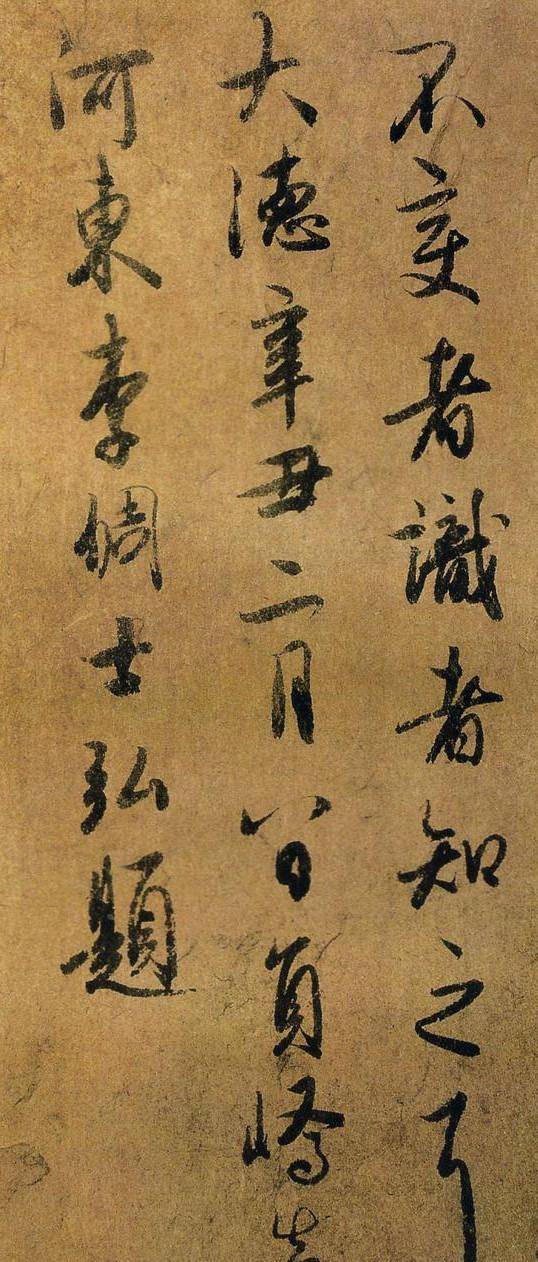 不变者識者知之耳
大德辛丑二月八日員嶠
河東李倜士弘題